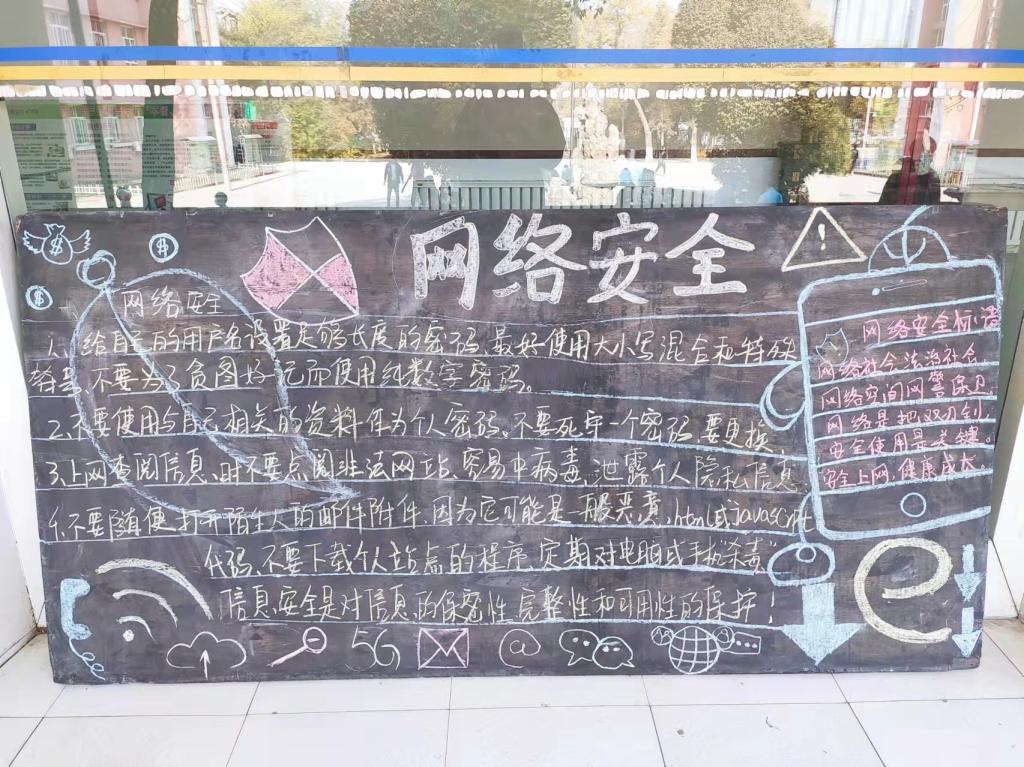 网络安全
网络安全
1、给自己的用户名设置足够长度的密码,最好使用大小写混合和特殊
符号,不要为了贪图好记而使用纯数字密码。
2、不要使用与自己相关的资料作为个人密码。不要死守一个密码,要更换,
3、上网查阅信息时不要点阅非法网站,容易中病毒,泄露个人隐私信息
4、不要随便打开陌生人的邮件附件,因为它可能是一般恶意、html或javascript
代码,不要下载个人站点的程序,定期对电脑或手机“杀毒”
信息安全是对信息的保密性、完整性和可用性的保护!
网络安全标语
网络社会法治社会,
网络空间网警保卫
网络是把双刃剑
安全使用是关键。
安全上网,健康成长。
5G
@